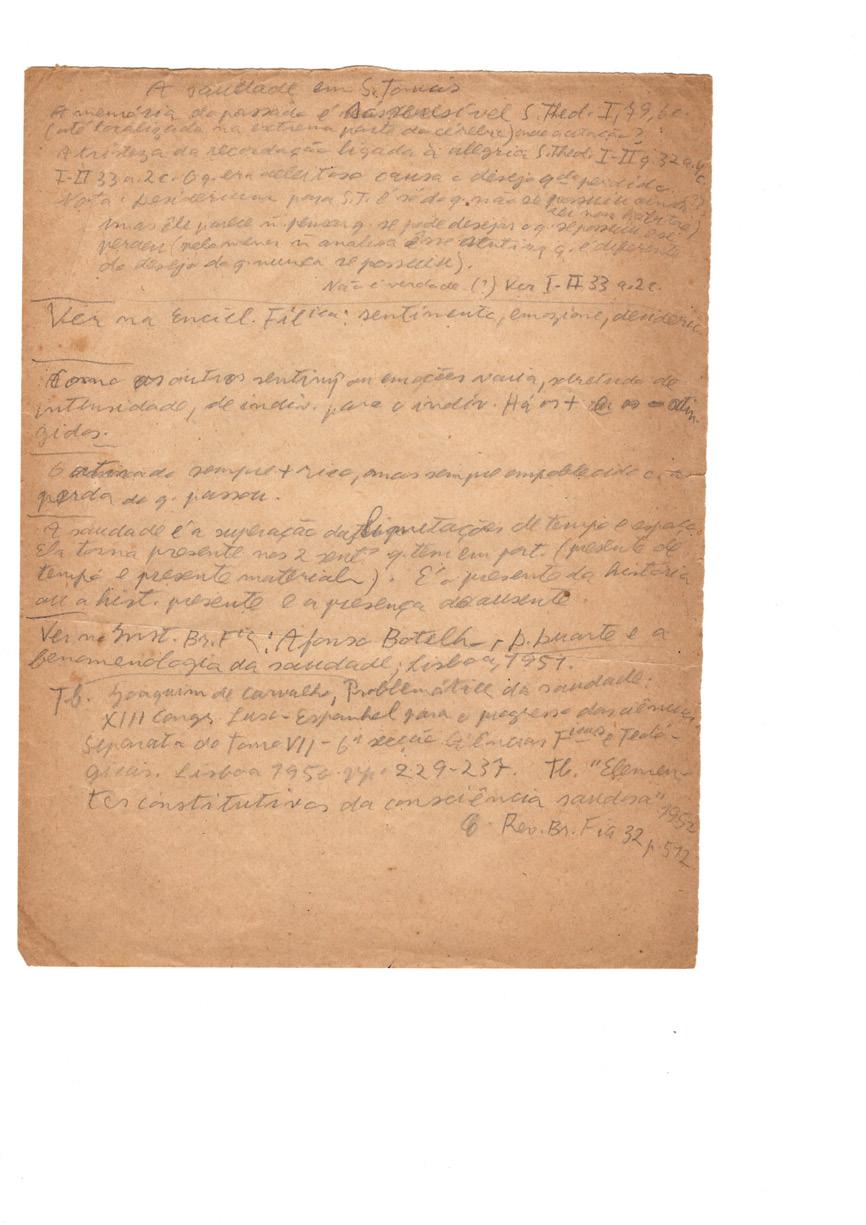 A saudade em S. Tomás
A memória do passado é sensível S. Theol. I, 79, 6c.
(até localizada na extrema parte do cérebro) onde a citação?
A tristeza da recordação ligada à alegria S. Theol. I-II q. 32 a. 4
I-II 33 a. 2 c. O q. era deleitoso causa o desejo qdo perdido.
Nota: Desiderium para S.T. é só do q. não se possuiu ainda (?)
mas êle parece ñ pensar q. se pode desejar o q. se possuiu e se
perdeu (pelo menos ñ analisa êsse sentimto q. é diferente
do desejo do q. nunca se possuiu).
Não é verdade (?) Ver I-II 33 a. 2c.
Ver na Encicl. Fílica: sentimento, emozione, desiderio
Como os outros sentimtos ou emoções varia, sobretudo de
intensidade, de indiv. para o indiv. Há os + e os - atin-
gidos.
sempre + rico, mas sempre empobrecido c. a
perda do q. passou.
A saudade é a superação das limitações de tempo e espaço.
Ela torna presente nos 2 sentos q. tem em port. (presente de
tempo e presente material). É o presente da história
ou a hist. presente e a presença do ausente.
Ver no Inst. Br. Fia: Afonso Botelho, D. Duarte e a
fenomenologia da saudade, Lisboa, 1951.
Tb. Joaquim de Carvalho, Problemática da saudade.
XIII Congr. Luso-Espanhol para o progresso das ciências
Separata do tomo VII - 6ª secção Ciências Ficas e Teoló-
gicas. Lisboa 1950 pp. 229-237. Tb. "Elemen-
tos constitutivos da consciência saudosa" 1952
Rev. Br. Fia 32, p. 512